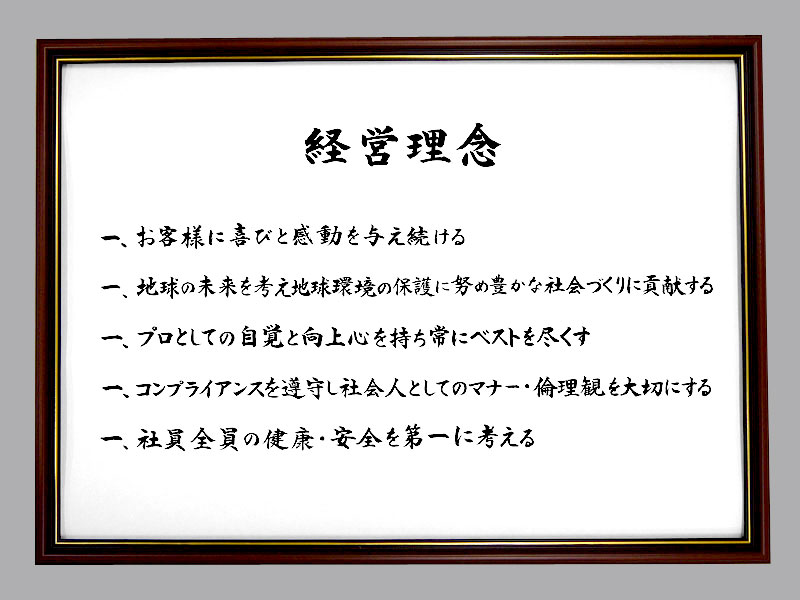 経営理念
一、お客様に喜びと感動を与え続ける
一、地球の未来を考え地球環境の保護に努め豊かな社会づくりに貢献する
一、プロとしての自覚と向上心を持ち常にベストを尽くす
一、コンプライアンスを遵守し社会人としてのマナー・倫理観を大切にする
一、社員全員の健康・安全を第一に考える